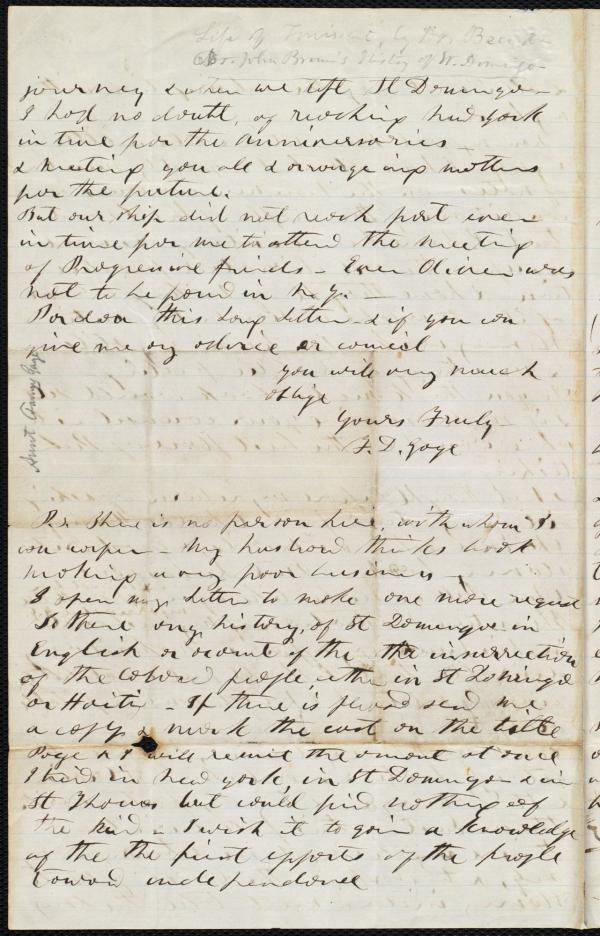 Life of Toussaint, by Dr. Beard
Dr. John Brown's History of St. Domingo
journey & when we left St Domingo -
I had no doubt, of reaching New York
in time for the Anniversaries -
& Meeting you all & arrangeing matters
for the future.
But our ship did not reach port even
in time for me to attend the Meeting
of Progressive friends - Even Oliver was
not to be found in N. Y. -
Pardon this Long Letter - & if you can
give me any advice or council
you will very much
oblige
Yours Truly
F. D. Gage
Aunt Gage
P.S. There is no person here, with whom I
can confer - My husband thinks book
making a very poor business -
I open my Letter to make one more request
Is there any history, of St Domingo in
English or account of the the insurrection
of the colored people either in St Domingo
or Haiti - If there is please send me
a copy & mark the cost on the title
Page & I will remit the amount at once
I tried in New York, in St Domingo & in
St Thomas but could find nothing of
the kind - I wish it to gain a knowledge
of the the first efforts of the people
toward independence